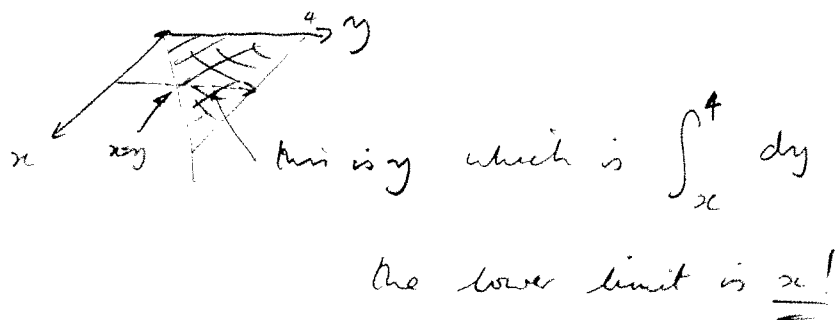 4
y
x
x=y
this is y which is ∫ₓ⁴ dy
the lower limit is x!